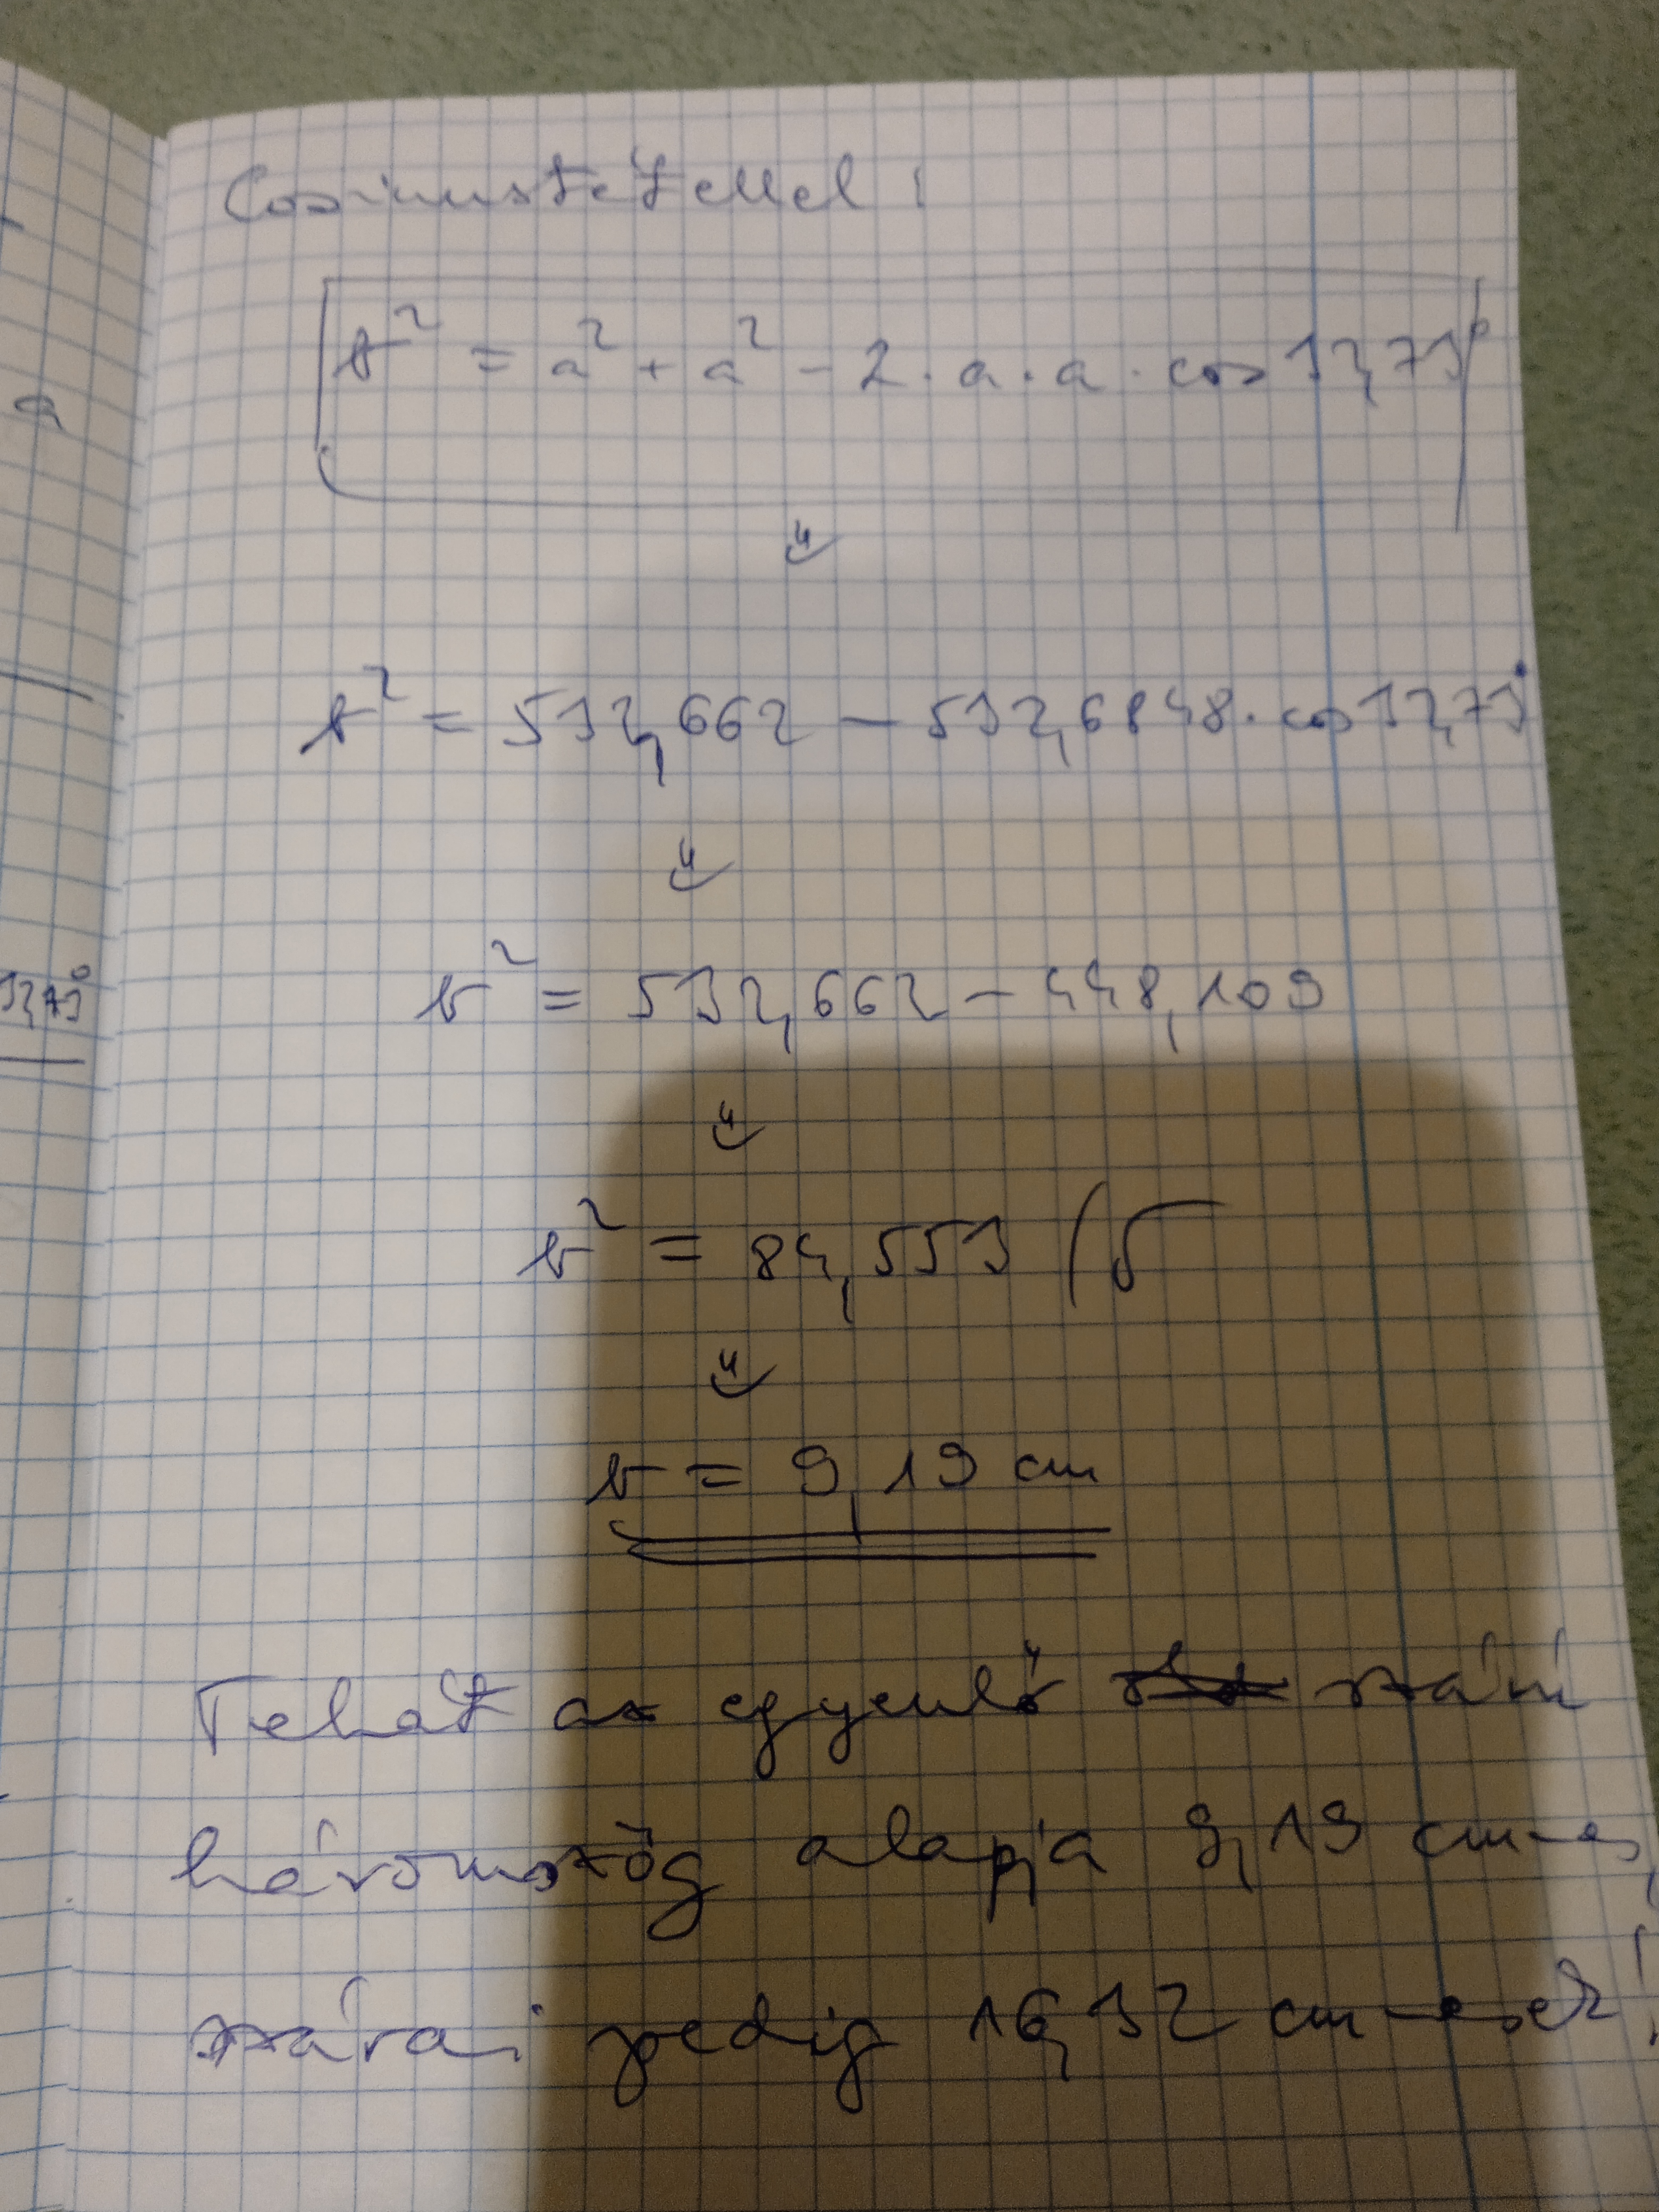 a
32,73°
Cosinustétellel!
b² = a² + a² - 2·a·a·cos 32,73°
⇓
b² = 532,662 - 532,6848·cos 32,73°
⇓
b² = 532,662 - 448,109
⇓
b² = 84,553 /√
⇓
b = 9,19 cm
Tehát az egyenlő szárú
háromszög alapja 9,19 cm-es,
szárai pedig 16,32 cm-esek!